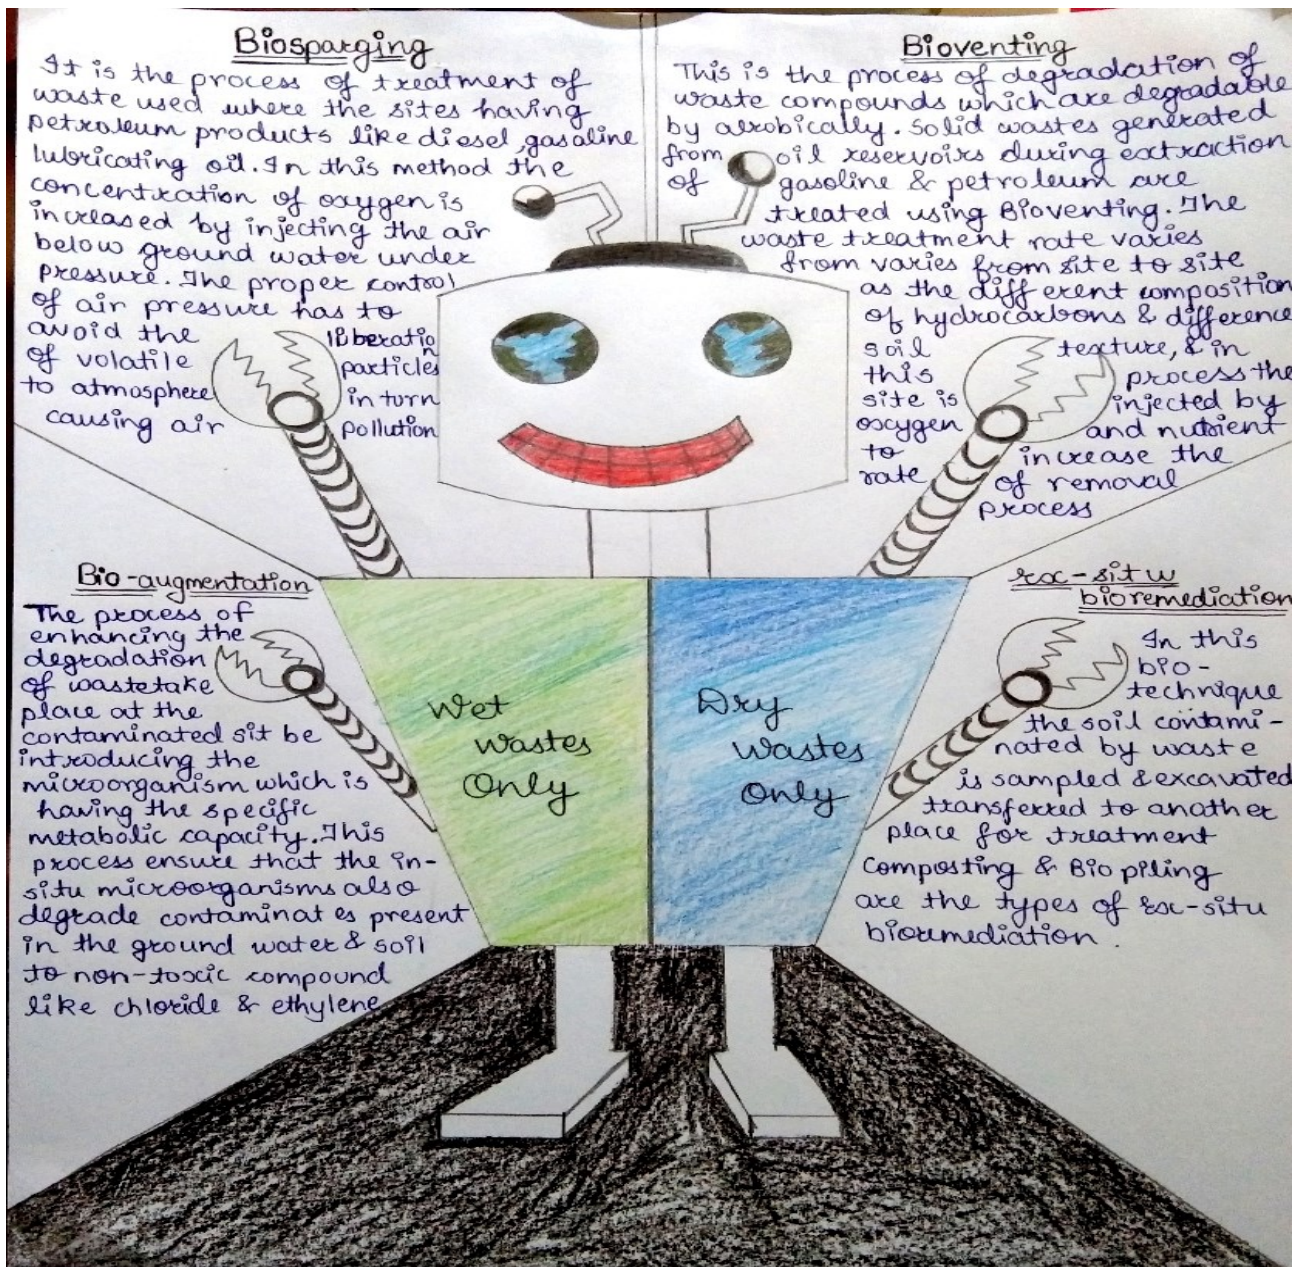 Biosparging
It is the process of treatment of
waste used where the sites having
petroleum products like diesel, gasoline
lubricating oil. In this method the
concentration of oxygen is
increased by injecting the air
below ground water under
pressure. The proper control
of air pressure has to
avoid the liberation
of volatile particles
to atmosphere in turn
causing air pollution
Bioventing
This is the process of degradation of
waste compounds which are degradable
by aerobically. Solid wastes generated
from oil reservoirs during extraction
of gasoline & petroleum are
treated using Bioventing. The
waste treatment rate varies
from varies from site to site
as the different composition
of hydrocarbons & difference
soil texture, & in
this process the
site is injected by
oxygen and nutrient
to increase the
rate of removal
process
Bio-augmentation
The process of
enhancing the
degradation
of wastetake
place at the
contaminated sit be
introducing the
microorganism which is
having the specific
metabolic capacity. This
process ensure that the in-
situ microorganisms also
degrade contaminates present
in the ground water & soil
to non-toxic compound
like chloride & ethylene
Wet
Wastes
Only
Dry
Wastes
Only
Ex-situ
bioremediation
In this
bio-
technique
the soil contami-
nated by waste
is sampled & excavated
transferred to another
place for treatment
Composting & Bio piling
are the types of Ex-situ
bioremediation.